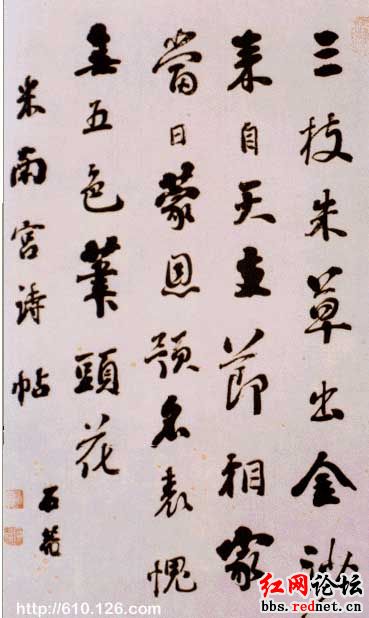 三枝朱草出金沙
來自天支節相家
當日蒙恩預名表愧
無五色筆頭花
米南宮詩帖
石菴
http://610.126.com
红网论坛
bbs.rednet.cn